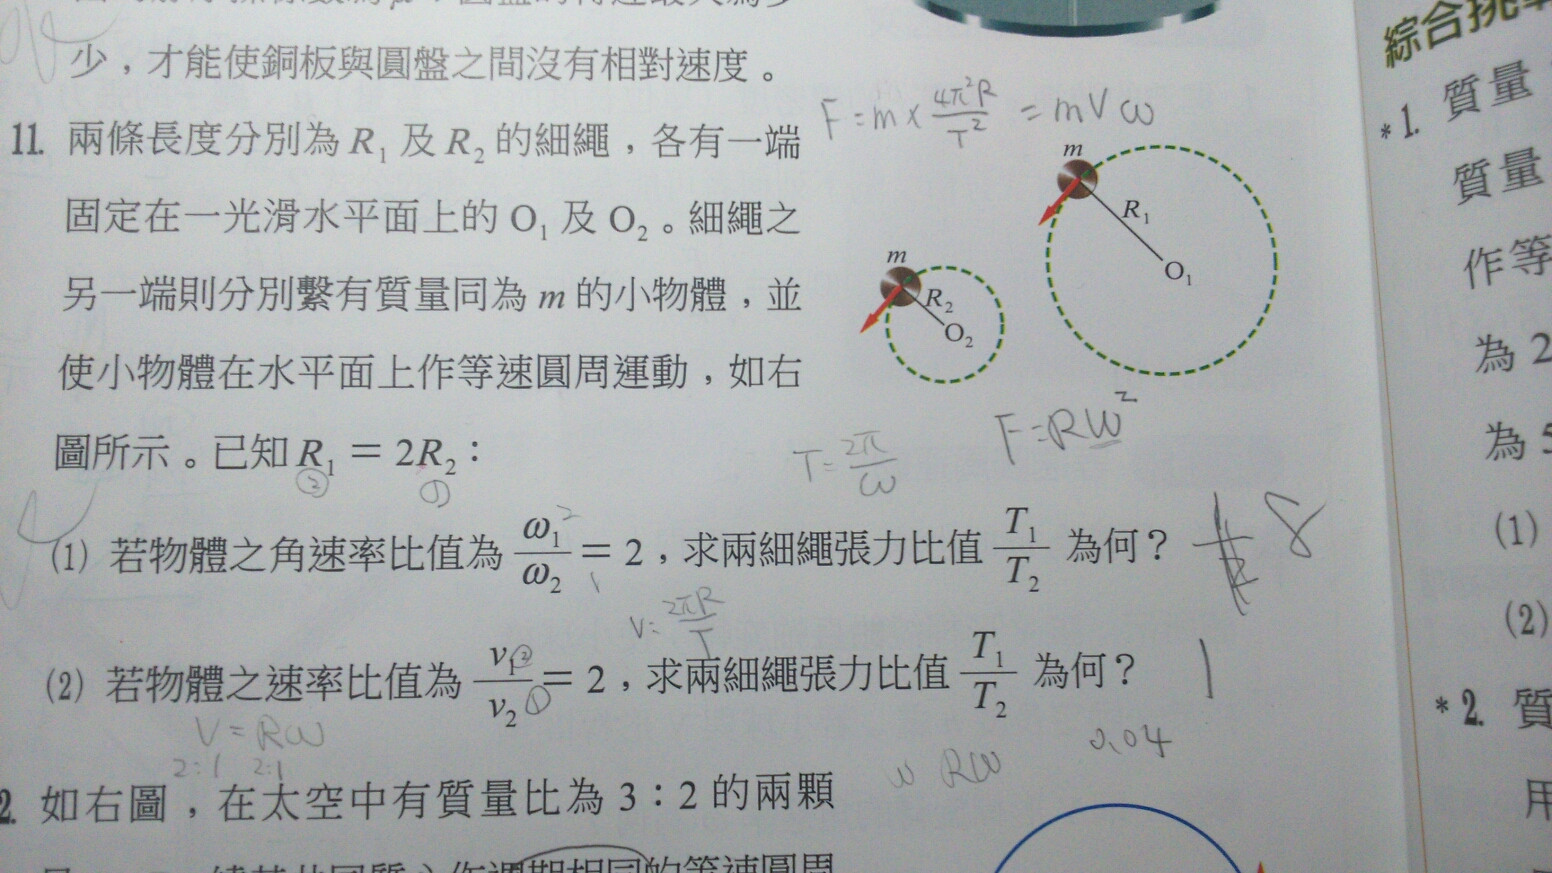 少，才能使銅板與圓盤之間沒有相對速度。
11. 兩條長度分別為 R₁ 及 R₂ 的細繩，各有一端
固定在一光滑水平面上的 O₁ 及 O₂。細繩之
另一端則分別繫有質量同為 m 的小物體，並
使小物體在水平面上作等速圓周運動，如右
圖所示。已知 R₁ = 2R₂：
② ①
(1) 若物體之角速率比值為 ω₁/ω₂ = 2，求兩細繩張力比值 T₁/T₂ 為何？ 8
(2) 若物體之速率比值為 v₁/v₂ = 2，求兩細繩張力比值 T₁/T₂ 為何？ 1
② ①
V = Rω
2:1 2:1
如右圖，在太空中有質量比為 3：2 的兩顆
F = m × 4π²R/T² = mVω
m
R₁
O₁
m
R₂
O₂
F = Rω²
T = 2π/ω
V = 2πR/T
ω Rω
0.04
綜合挑
*1. 質量
質量
作等
為 2
為 5
(1)
(2)
*2. 質
用